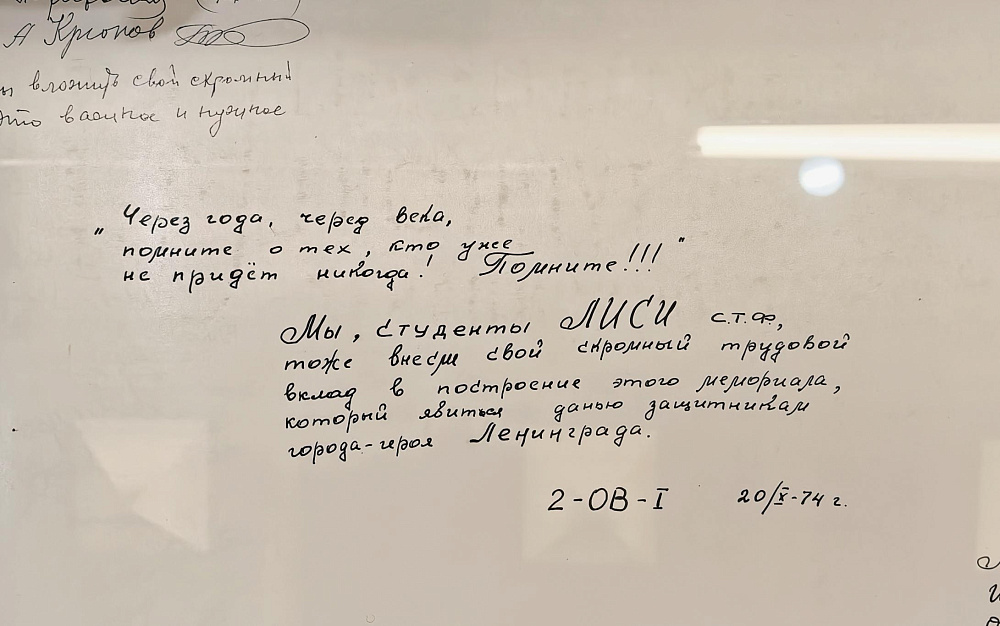 А Крюков
вложить свой скромный
это важное и нужное
„ Через года, черед века,
помните о тех, кто уже
не придёт никогда! Помните!!! "
Мы, студенты ЛИСИ с.т.ф.,
тоже внесли свой скромный трудовой
вклад в построение этого мемориала,
который явиться данью защитникам
города-героя Ленинграда.
2-ОВ-I 20/X-74 г.